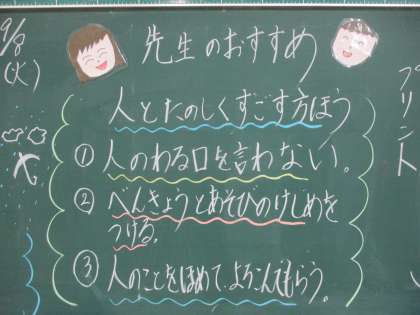 9/8
(火)
先生のおすすめ
人とたのしくすごす方ほう
① 人のわる口を言わない。
② べんきょうとあそびのけじめを
つける。
③ 人のことをほめて、よろこんでもらう。
プリント